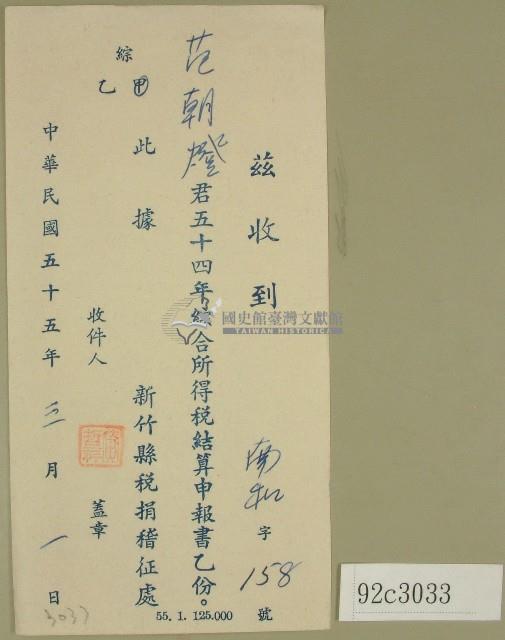 茲收到
南和字158號
范朝燈君五十四年綜合所得税結算申報書乙份。
綜甲乙
此據
新竹縣税捐稽征處
收件人
蓋章
中華民國五十五年三月一日
55.1.125.000
3033
92c3033
國史館臺灣文獻館
TAIWAN HISTORICA